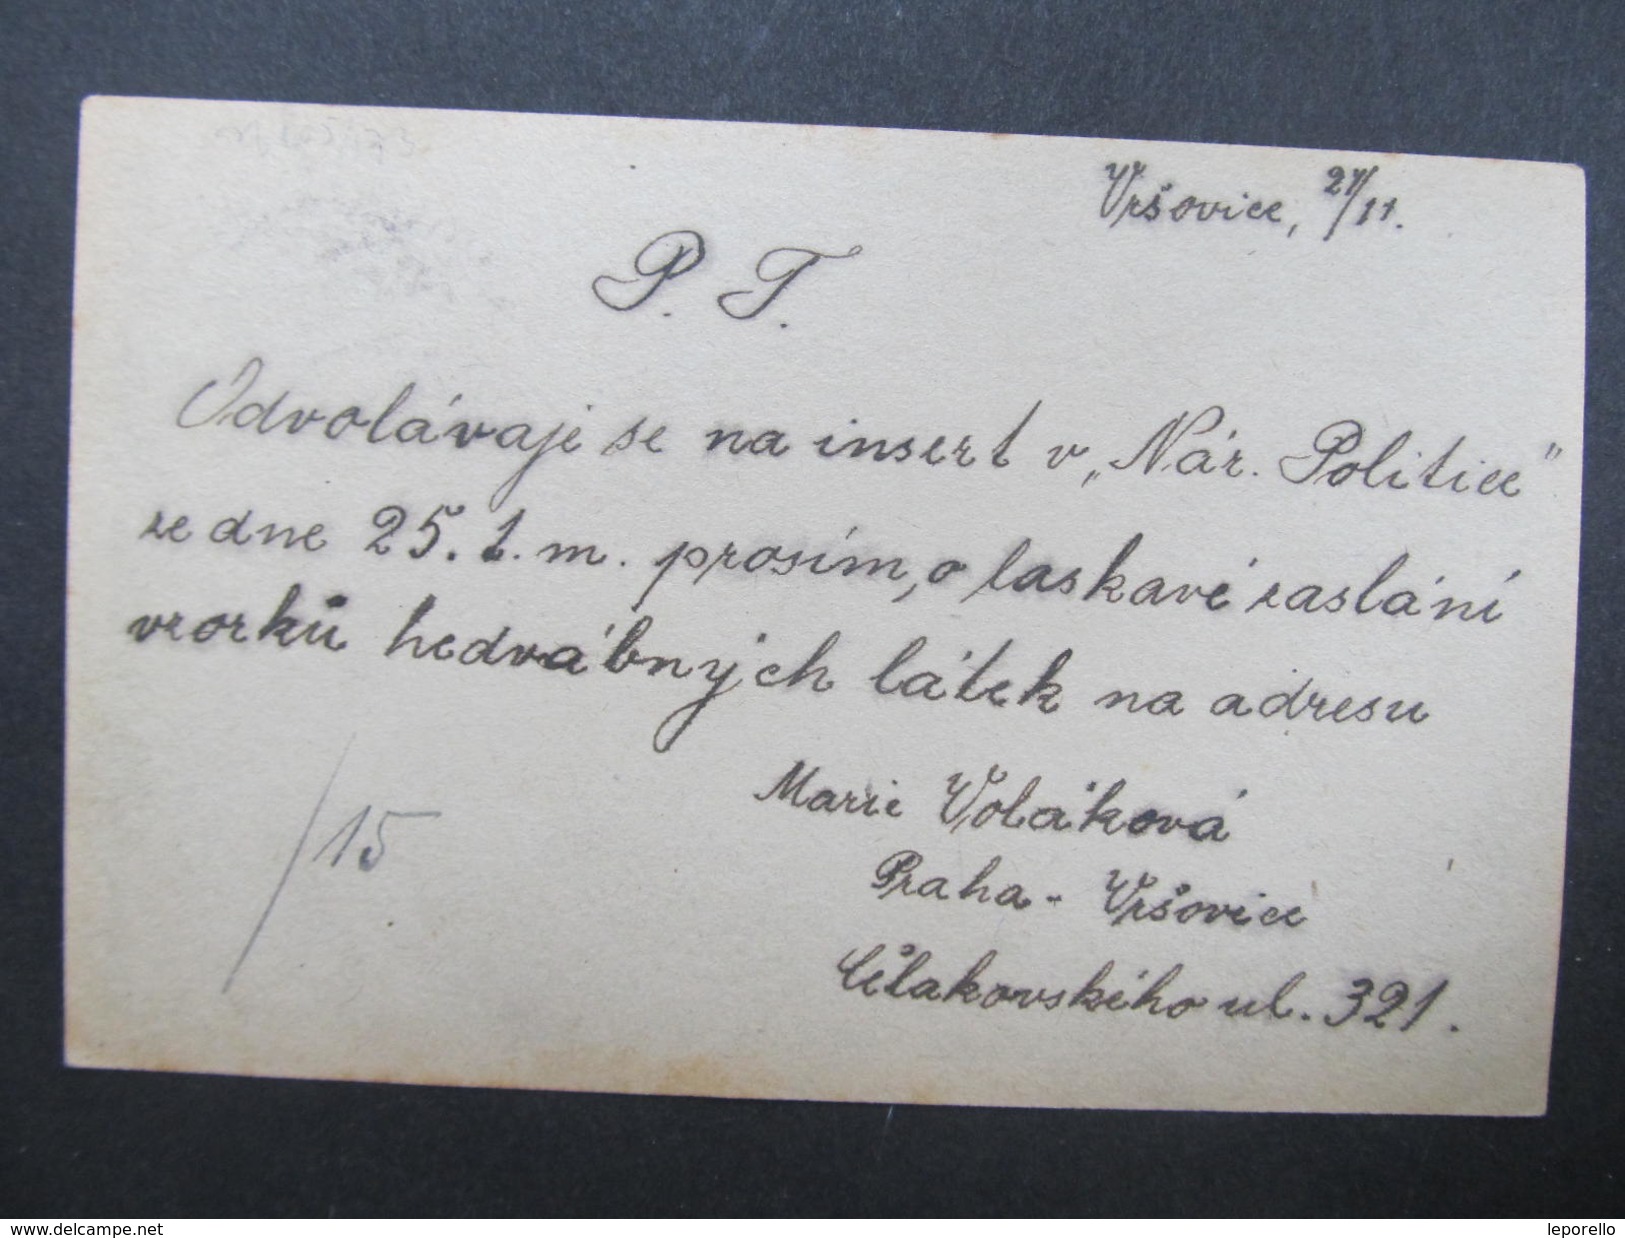 Vršovice, 27/11.
P. T.
Odvolávaje se na insert v „Nár. Politice“
ze dne 25. t. m. prosím, o laskavé zaslání
vzorků hedvábných látek na adresu
Marie Voláková
Praha - Vršovice
Čelakovského ul. 321.
/15
www.delcampe.net
leporello